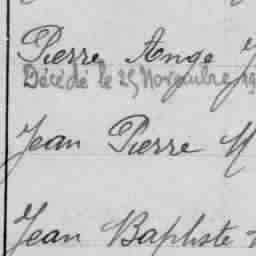 Pierre Ange
Décédé le 25 Novembre 19
Jean Pierre M
Jean Baptiste